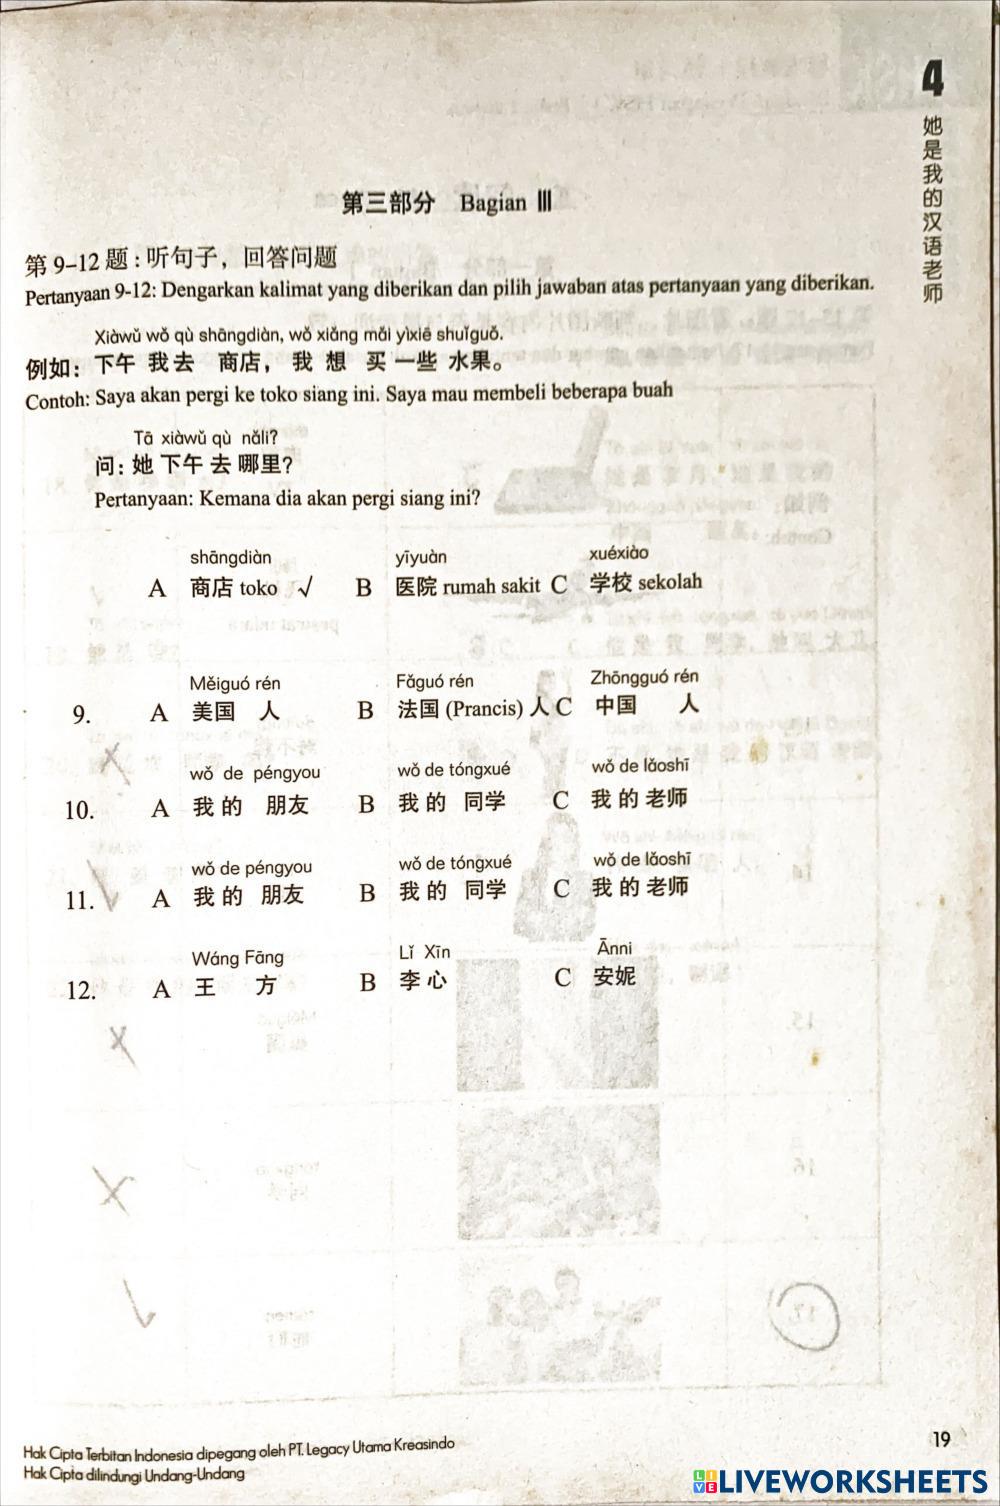 4
她是我的汉语老师
第三部分 Bagian III
第 9–12 题：听句子，回答问题
Pertanyaan 9-12: Dengarkan kalimat yang diberikan dan pilih jawaban atas pertanyaan yang diberikan.
Xiàwǔ wǒ qù shāngdiàn, wǒ xiǎng mǎi yìxiē shuǐguǒ.
例如：下午 我去 商店， 我 想 买 一些 水果。
Contoh: Saya akan pergi ke toko siang ini. Saya mau membeli beberapa buah
Tā xiàwǔ qù nǎli?
问：她 下午 去 哪里?
Pertanyaan: Kemana dia akan pergi siang ini?
shāngdiàn yīyuàn xuéxiào
A 商店 toko √ B 医院 rumah sakit C 学校 sekolah
Měiguó rén Fǎguó rén Zhōngguó rén
9. A 美国 人 B 法国 (Prancis) 人 C 中国 人
wǒ de péngyou wǒ de tóngxué wǒ de lǎoshī
10. A 我 的 朋友 B 我 的 同学 C 我 的 老师
wǒ de péngyou wǒ de tóngxué wǒ de lǎoshī
11. A 我 的 朋友 B 我 的 同学 C 我 的 老师
Wáng Fāng Lǐ Xīn Ānni
12. A 王 方 B 李 心 C 安妮
Hak Cipta Terbitan Indonesia dipegang oleh PT. Legacy Utama Kreasindo
Hak Cipta dilindungi Undang-Undang
19
LIVEWORKSHEETS